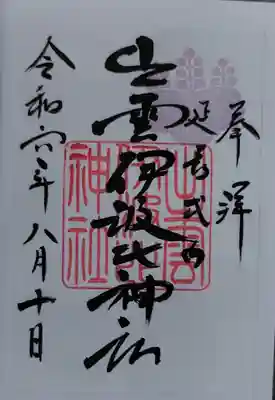 奉拝
延喜式内
出雲伊波比神社
出雲伊波比神社
令和六年八月十日